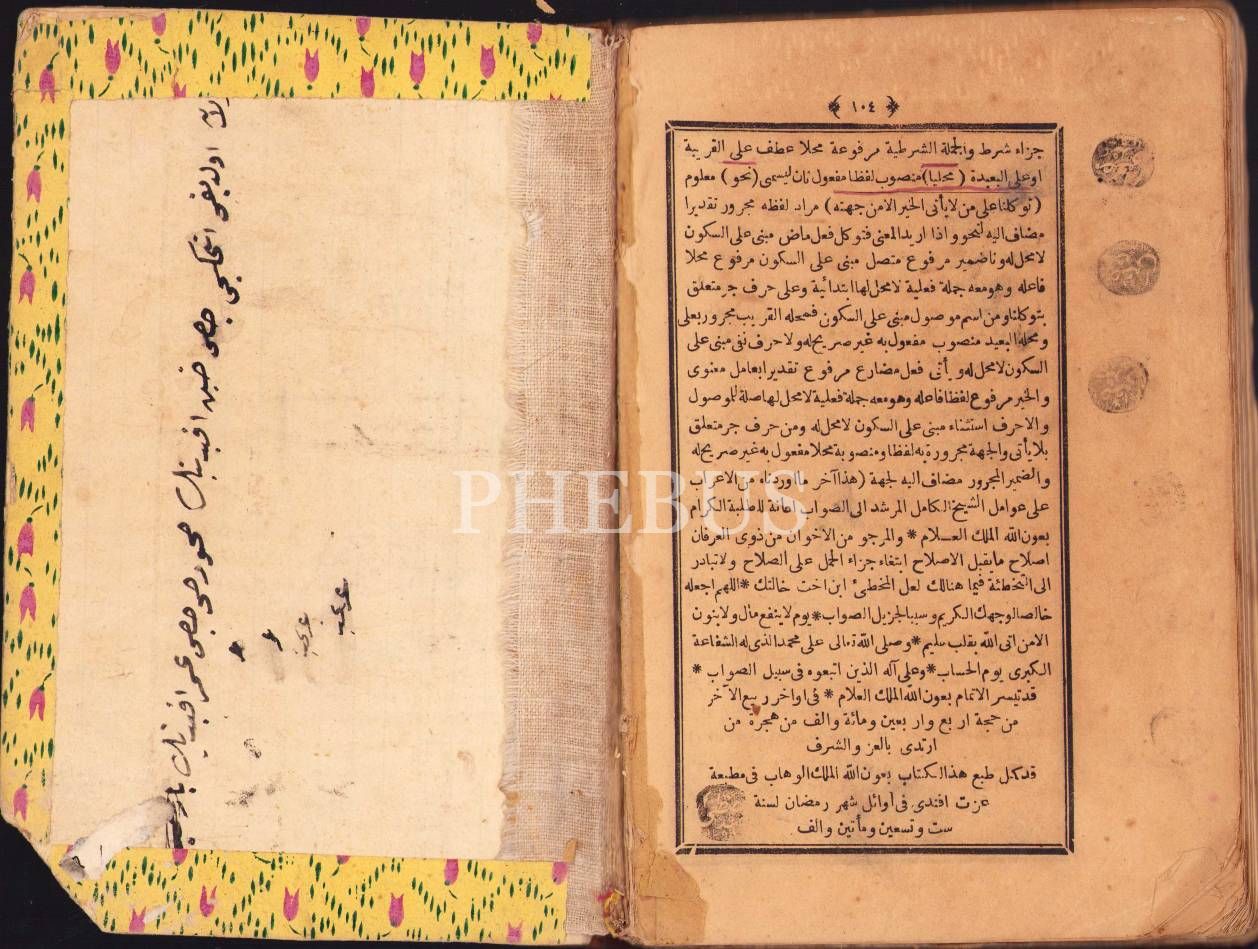 ﴿ ١٠٤ ﴾
جزاء شرط والجملة الشرطية مرفوعة محلا عطف على القريبة
اوعلى البعيدة ( محليا) منصوب لفظا مفعول ثان ليسمى (نحو ) معلوم
(توكلنا على من لا يأتى الخير الامن جهته) مراد لفظه مجرور تقديرا
مضاف اليه لنحو واذا اريد المعنى فتوكل فعل ماض مبنى على السكون
لامحل له ونا ضمير مرفوع متصل مبنى على السكون مرفوع محلا
فاعله وهو معه جملة فعلية لامحل لها ابتدائية وعلى حرف جر متعلق
بتوكلنا ومن اسم موصول مبنى على السكون فمحله القريب مجرور بعلى
ومحله البعيد منصوب مفعول به غير صريح له ولا حرف نفى مبنى على
السكون لامحل له ويأتى فعل مضارع مرفوع تقديرا بعامل معنوى
والخير مرفوع لفظا فاعله وهو معه جملة فعلية لامحل لها صلة للموصول
والاحرف استثناء مبنى على السكون لامحل له ومن حرف جر متعلق
بلا يأتى والجهة مجروره به لفظا ومنصوبة محلا مفعول به غير صريح له
والضمير المجرور مضاف اليه لجهة (هذا آخر ما اوردناه من الاعراب
على عوامل الشيخ الكامل المرشد الى الصواب اعانة للطلبة الكرام
بعون الله الملك العـلام * والمرجو من الاخوان من ذوى العرفان
اصلاح ما يقبل الاصلاح ابتغاء جزاء الحمل على الصلاح ولا تبادر
الى التخطئة فيما هنالك لعل المخطئ ابن اخت خالتك * اللهم اجعله
خالصا لوجهك الكريم وسببا لجزيل الصواب * يوم لا ينفع مال ولا بنون
الا من اتى الله بقلب سليم * وصلى الله تعالى على محمد الذى له الشفاعة
الكبرى يوم الحساب * وعلى آله الذين اتبعوه فى سبيل الصواب *
قد تيسر الاتمام بعون الله الملك العلام * فى اواخر ربيع الآخر
من حجة اربع واربعين ومائة والف من هجرة من
ارتدى بالعز والشرف
قد كمل طبع هذا الكتاب بعون الله الملك الوهاب فى مطبعة
عزت افندى فى أوائل شهر رمضان لسنة
ست وتسعين ومأتين والف
PHEBUS